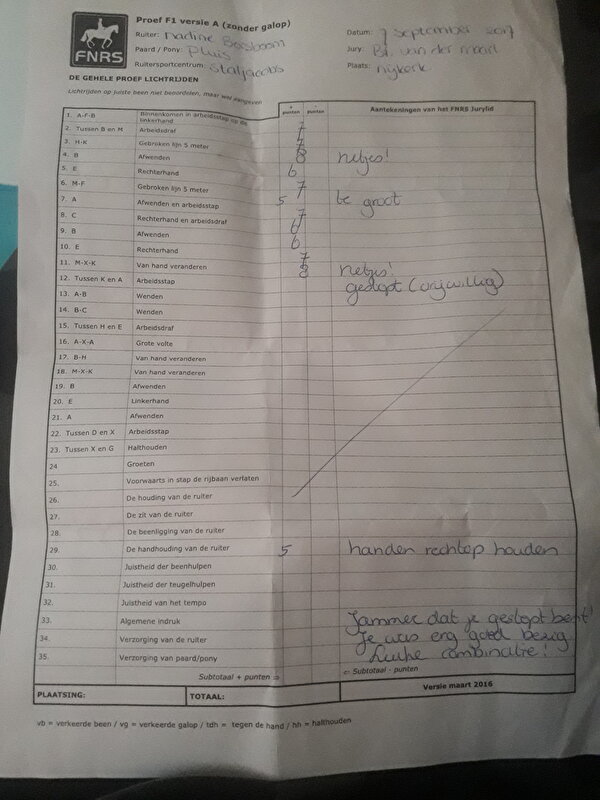 FNRS
Proef F1 versie A (zonder galop)
Ruiter: Nadine
Paard / Pony: Pluis
Ruitersportcentrum: staljacobs
Datum: 7 september 2017
Jury: B. van der
Plaats: Nijkerk
DE GEHELE PROEF LICHTRIJDEN
Lichtrijden op juiste been niet beoordelen, maar wel aangeven
+ punten - punten Aantekeningen van het FNRS Jurylid
1. A-F-B Binnenkomen in arbeidsstap op de linkerhand
2. Tussen B en M Arbeidsdraf 7
3. H-K Gebroken lijn 5 meter 7
4. B Afwenden 8 netjes!
5. E Rechterhand 6
6. M-F Gebroken lijn 5 meter 7
7. A Afwenden en arbeidsstap 5 te groot
8. C Rechterhand en arbeidsdraf 7
9. B Afwenden 6
10. E Rechterhand 6
11. M-X-K Van hand veranderen 7
12. Tussen K en A Arbeidsstap 8 netjes!
13. A-B Wenden gestopt (vrijwillig)
14. B-C Wenden
15. Tussen H en E Arbeidsdraf
16. A-X-A Grote volte
17. B-H Van hand veranderen
18. M-X-K Van hand veranderen
19. B Afwenden
20. E Linkerhand
21. A Afwenden
22. Tussen D en X Arbeidsstap
23. Tussen X en G Halthouden
24 Groeten
25. Voorwaarts in stap de rijbaan verlaten
26. De houding van de ruiter
27. De zit van de ruiter
28. De beenligging van de ruiter
29. De handhouding van de ruiter 5 handen rechtop houden
30. Juistheid der beenhulpen
31. Juistheid der teugelhulpen
32. Juistheid van het tempo
33. Algemene indruk Jammer dat je gestopt bent!
34. Verzorging van de ruiter Je was erg goed bezig
35. Verzorging van paard/pony Leuke combinatie!
Subtotaal + punten ⇒ ⇐ Subtotaal - punten
PLAATSING: TOTAAL: Versie maart 2016
vb = verkeerde been / vg = verkeerde galop / tdh = tegen de hand / hh = halthouden